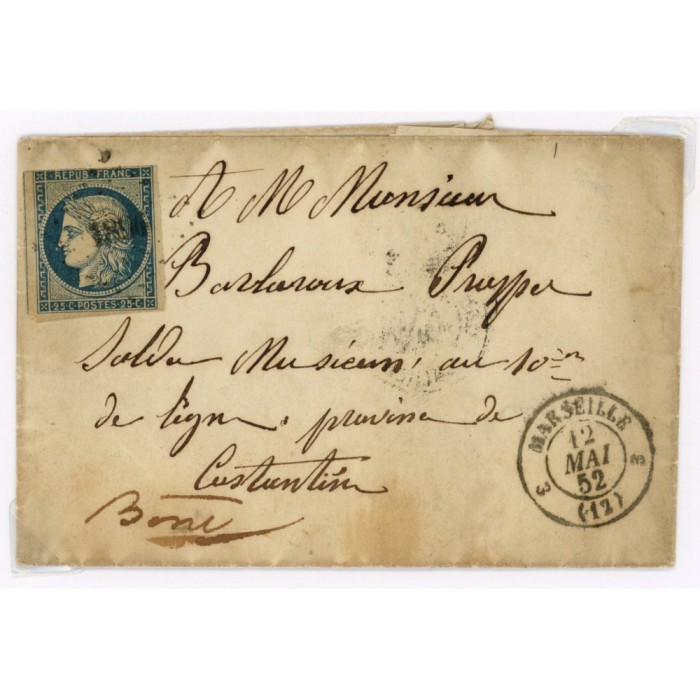 REPUB. FRANC.
25 · C · POSTES · 25 · C ·
A M Monsieur
Barbaroux Prosper
Solda Musicien, au 10 m
de ligne, provinse de
Costantine
Bone
MARSEILLE
12
MAI
52
3 (12) 3